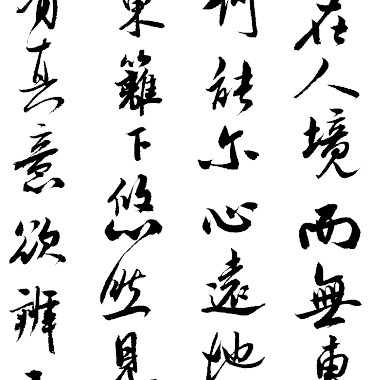 在人境而無車
何能尔心遠地
東籬下悠然見
有真意欲辨已